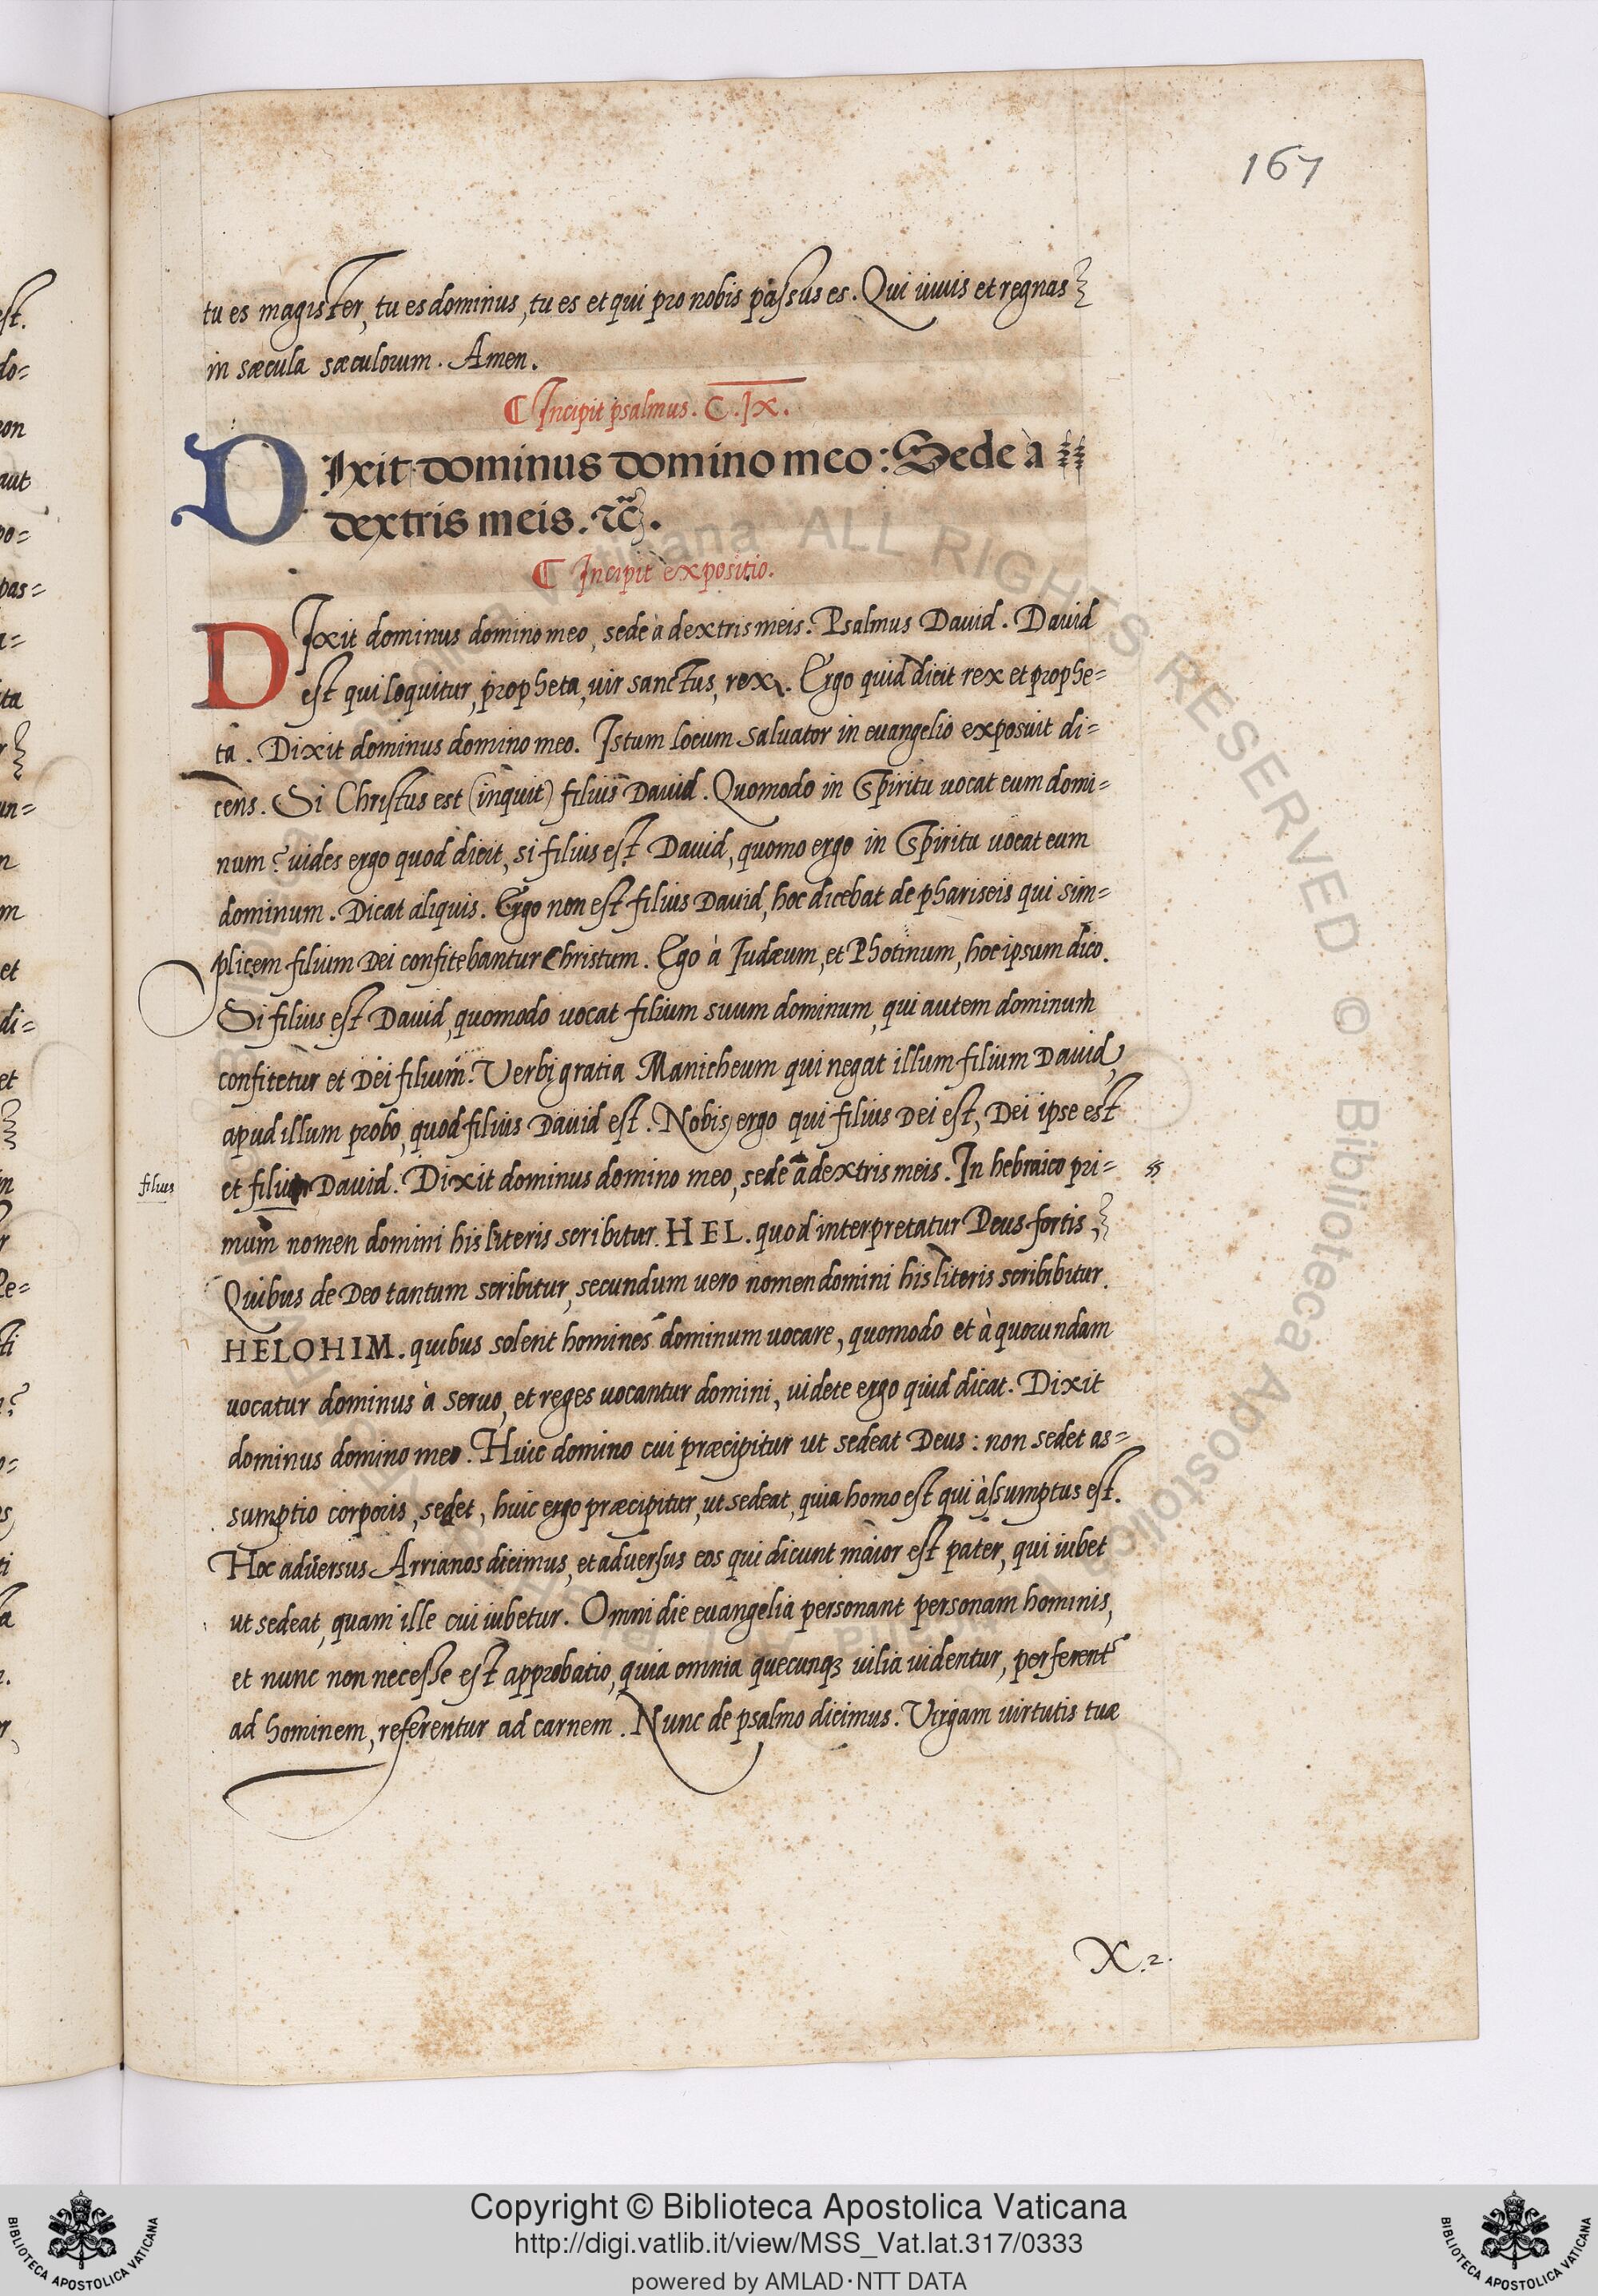 167
tu es magister, tu es dominus, tu es et qui pro nobis passus es. Qui uiuis et regnas
in sæcula sæculorum. Amen.
¶ Incipit psalmus. C.IX.
DIxit dominus domino meo: Sede à
dextris meis. ⁊c̃.
¶ Incipit expositio.
DIxit dominus domino meo, sede à dextris meis. Psalmus Dauid. Dauid
est qui loquitur, propheta, uir sanctus, rex. Ergo quid dicit rex et prophe=
ta. Dixit dominus domino meo. Istum locum saluator in euangelio exposuit di=
cens. Si Christus est (inquit) filius Dauid. Quomodo in Spiritu uocat eum domi=
num? uides ergo quod dicit, si filius est Dauid, quomo ergo in Spiritu uocat eum
dominum. Dicat aliquis. Ergo non est filius Dauid, hoc dicebat de phariseis qui sim=
plicem filium Dei confitebantur Christum. Ego à Iudæum, et Photinum, hoc ipsum dico.
Si filius est Dauid, quomodo uocat filium suum dominum, qui autem dominum
confitetur et Dei filium. Verbi gratia Manicheum qui negat illum filium Dauid,
apud illum probo, quod filius Dauid est. Nobis ergo qui filius Dei est, Dei ipse est
filius
et filium Dauid. Dixit dominus domino meo, sede à dextris meis. In hebraico pri=
mum nomen domini his literis scribitur. HEL. quod interpretatur Deus fortis,
Quibus de Deo tantum scribitur, secundum uero nomen domini his literis scribibitur.
HELOHIM. quibus solent homines dominum uocare, quomodo et à quorundam
uocatur dominus à seruo, et reges uocantur domini, uidete ergo quid dicat. Dixit
dominus domino meo. Huic domino cui præcipitur ut sedeat Deus: non sedet as=
sumptio corporis, sedet, huic ergo præcipitur, ut sedeat, quia homo est qui àssumptus est.
Hoc aduersus Arrianos dicimus, et aduersus eos qui dicunt maior est pater, qui iubet
ut sedeat, quam ille cui iubetur. Omni die euangelia personant personam hominis,
et nunc non necesse est approbatio, quia omnia quecunqꝫ uilia uidentur, perferent
ad hominem, referentur ad carnem. Nunc de psalmo dicimus. Virgam uirtutis tuæ
X.2.
Copyright © Biblioteca Apostolica Vaticana
http://digi.vatlib.it/view/MSS_Vat.lat.317/0333
powered by AMLAD·NTT DATA
BIBLIOTECA APOSTOLICA VATICANA
BIBLIOTECA APOSTOLICA VATICANA